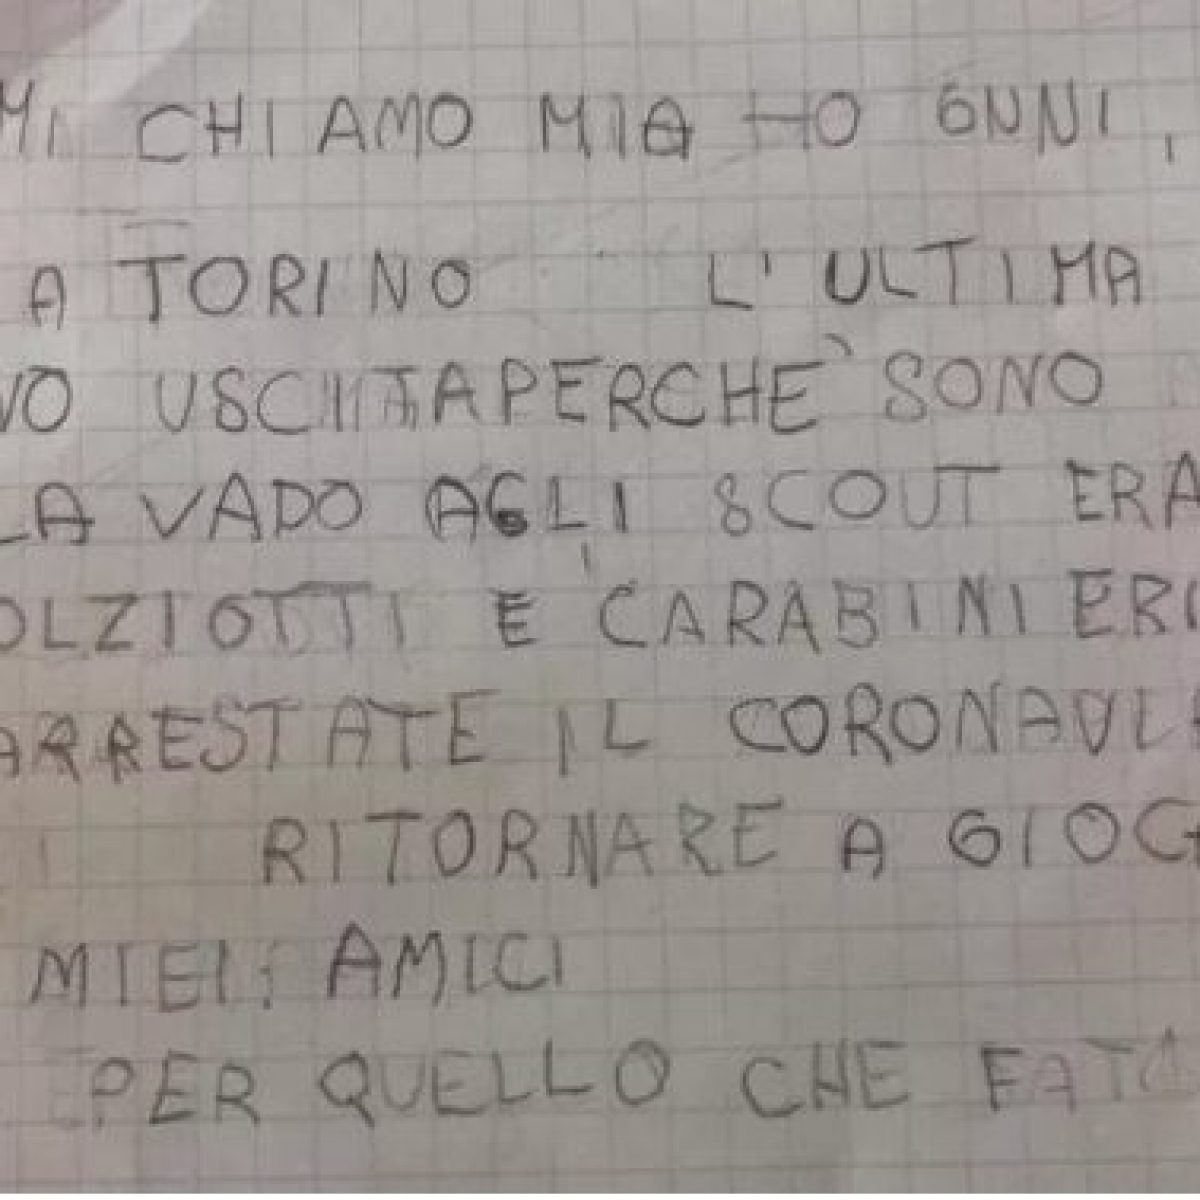 MI CHIAMO MIA HO 6NNI,
A TORINO L'ULTIMA
VO USCITAPERCHÈ SONO
LA VADO AGLI SCOUT ERA
OLZIOTTI E CARABINIERI
ARRESTATE IL CORONAVI
RITORNARE A GIOC
MIEI AMICI
PER QUELLO CHE FATE